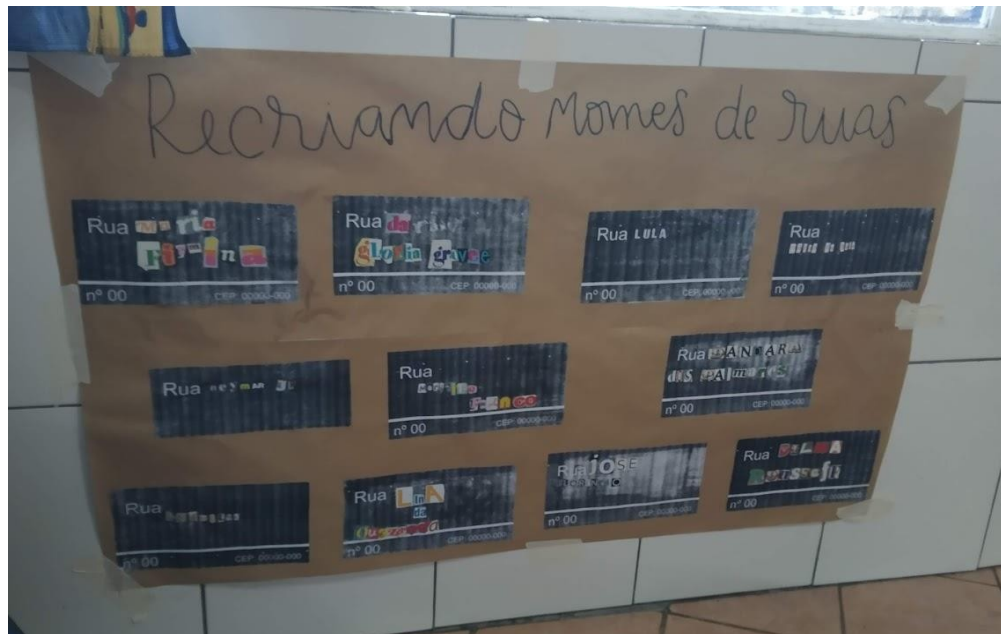 Recriando nomes de ruas
Rua Maria
Firmina
nº 00 CEP 00000-000
Rua da
gloria groove
nº 00 CEP 00000-000
Rua LULA
nº 00 CEP 00000-000
Rua
nº 00 CEP 00000-000
Rua neymar JR
Rua
franco
nº 00 CEP 00000-000
Rua DANDARA
dos palmares
nº 00 CEP 00000-000
Rua
nº 00 CEP 00000-000
Rua LinA
da
Quebrada
nº 00 CEP 00000-000
Rua JOSE
nº 00 CEP 00000-000
Rua DILMA
Rousseff
nº 00 CEP 00000-000